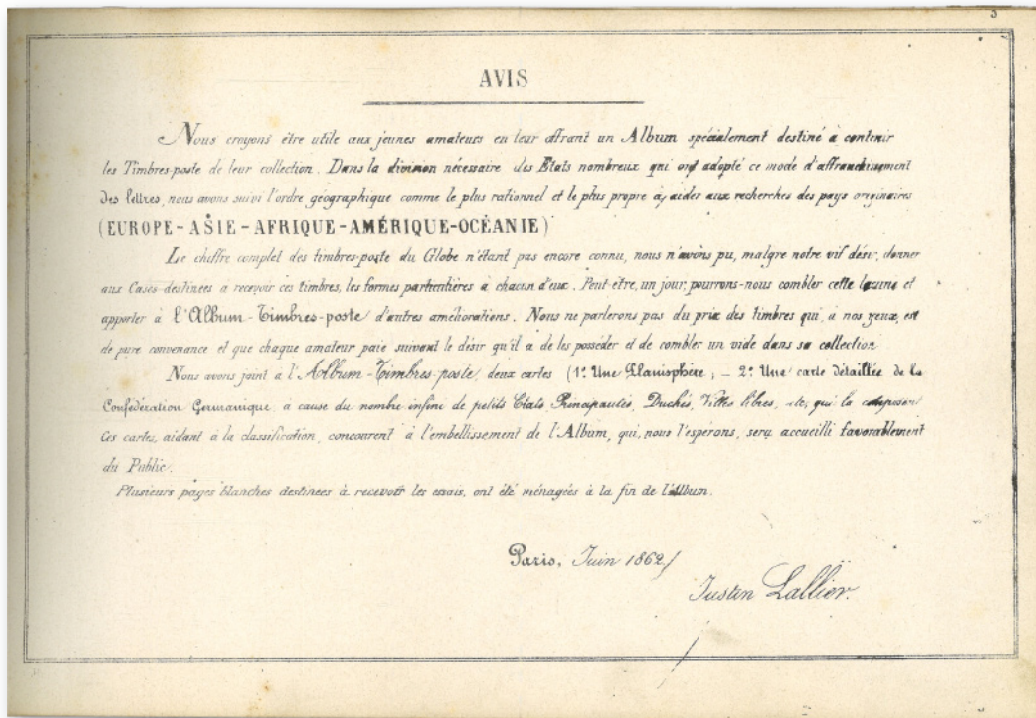 3
AVIS
Nous croyons être utile aux jeunes amateurs en leur offrant un Album spécialement destiné à contenir
les Timbres-poste de leur collection. Dans la division nécessaire des Etats nombreux qui ont adopté ce mode d'affranchissement
des lettres, nous avons suivi l'ordre géographique comme le plus rationnel et le plus propre à aider aux recherches des pays originaires
(EUROPE-ASIE-AFRIQUE-AMÉRIQUE-OCÉANIE)
Le chiffre complet des timbres-poste du Globe n'étant pas encore connu, nous n'avons pu, malgre notre vif désir, donner
aux Cases destinées a recevoir ces timbres, les formes particulières à chacun d'eux. Peut-être, un jour, pourrons-nous combler cette lacune et
apporter à l'Album-Timbres-poste d'autres améliorations. Nous ne parlerons pas du prix des timbres qui, à nos yeux, est
de pure convenance et que chaque amateur paie suivant le désir qu'il a de les posséder et de combler un vide dans sa collection
Nous avons joint a l'Album-Timbres-poste, deux cartes (1º Une Planisphère; – 2º Une carte détaillée de la
Confédération Germanique, à cause du nombre infini de petits Etats, Principautés, Duchés, Villes libres, etc, qui la composent
Ces cartes, aidant à la classification, concourent à l'embellissement de l'Album, qui, nous l'espérons, sera accueilli favorablement
du Public.
Plusieurs pages blanches destinées à recevoir les essais, ont été ménagées à la fin de l'Album.
Paris, Juin 1862
Justin Lallier.